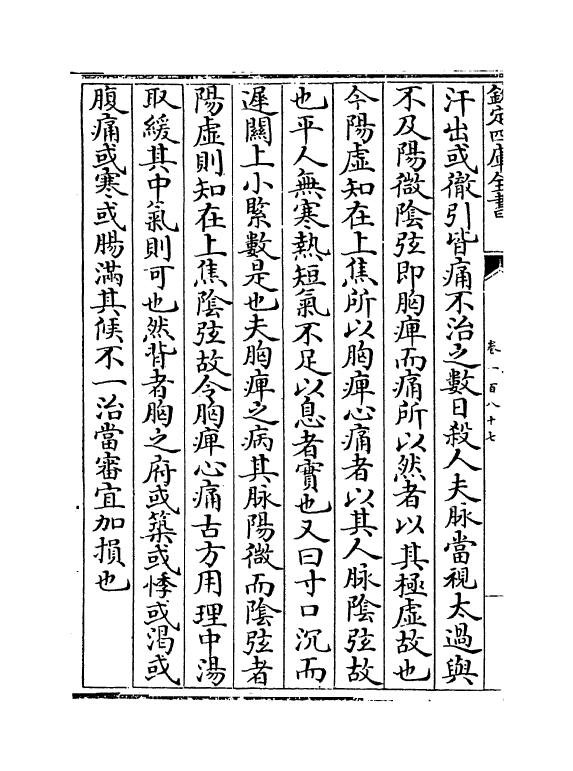 欽定四庫全書
卷一百八十七
汗出或徹引背痛不治之數日殺人夫脉當視太過與
不及陽微陰弦即胸痺而痛所以然者以其極虛故也
今陽虛知在上焦所以胸痺心痛者以其人脉陰弦故
也平人無寒熱短氣不足以息者實也又曰寸口沉而
遲關上小緊數是也夫胸痺之病其脉陽微而陰弦者
陽虛則知在上焦陰弦故令胸痺心痛古方用理中湯
取緩其中氣則可也然背者胸之府或築或悸或渴或
腹痛或寒或腸滿其候不一治當審宜加損也